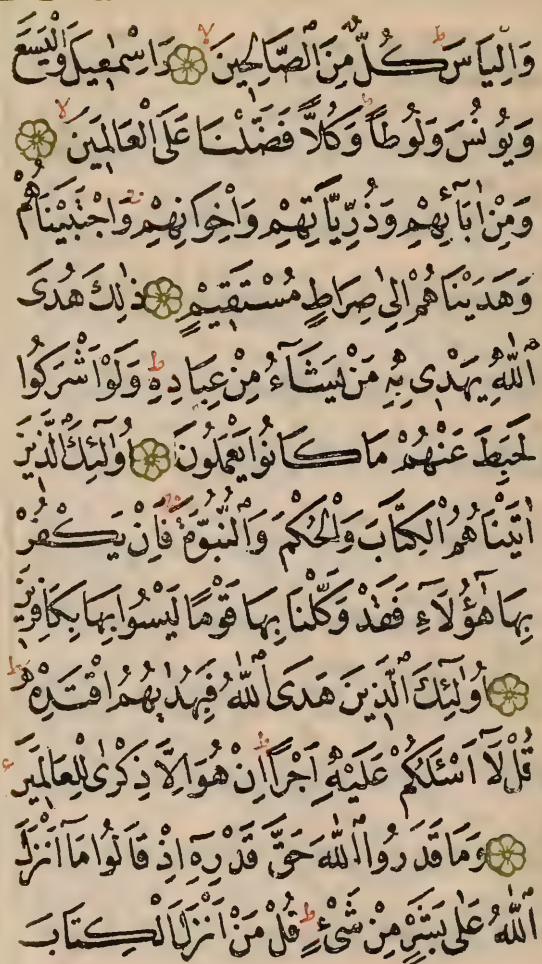 وَاِلْيَاسَ كُلٌّ مِنَ الصَّالِحٖينَ وَاِسْمٰعٖيلَ وَالْيَسَعَ
وَيُونُسَ وَلُوطاً وَكُلاًّ فَضَّلْنَا عَلَى الْعَالَمٖينَ
وَمِنْ اٰبَٓائِهِمْ وَذُرِّيَّاتِهِمْ وَاِخْوَانِهِمْ وَاجْتَبَيْنَاهُمْ
وَهَدَيْنَاهُمْ اِلٰى صِرَاطٍ مُسْتَقٖيمٍ ذٰلِكَ هُدَى
اللّٰهِ يَهْدٖى بِهٖ مَنْ يَشَٓاءُ مِنْ عِبَادِهٖ وَلَوْ اَشْرَكُوا
لَحَبِطَ عَنْهُمْ مَا كَانُوا يَعْمَلُونَ اُولٰٓئِكَ الَّذٖينَ
اٰتَيْنَاهُمُ الْكِتَابَ وَالْحُكْمَ وَالنُّبُوَّةَ فَاِنْ يَكْفُرْ
بِهَا هٰٓؤُلَٓاءِ فَقَدْ وَكَّلْنَا بِهَا قَوْمًا لَيْسُوا بِهَا بِكَافِرٖينَ
اُولٰٓئِكَ الَّذٖينَ هَدَى اللّٰهُ فَبِهُدٰيهُمُ اقْتَدِهْ
قُلْ لَٓا اَسْئَلُكُمْ عَلَيْهِ اَجْراً اِنْ هُوَ اِلَّا ذِكْرٰى لِلْعَالَمٖينَ
وَمَا قَدَرُوا اللّٰهَ حَقَّ قَدْرِهٖٓ اِذْ قَالُوا مَٓا اَنْزَلَ
اللّٰهُ عَلٰى بَشَرٍ مِنْ شَیْءٍ قُلْ مَنْ اَنْزَلَ الْكِتَابَ